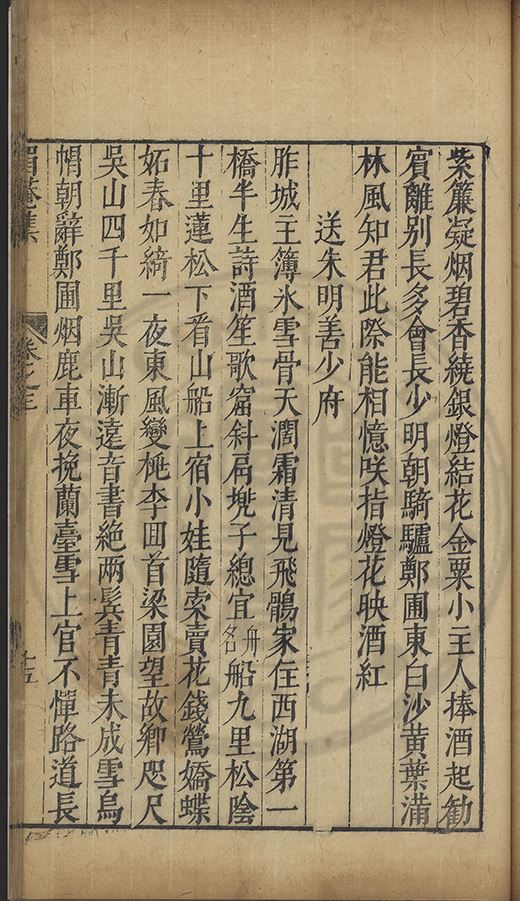 紫簾凝烟碧香繞銀燈結花金粟小主人捧酒起勸
賓離別長多會長少明朝騎驢鄭圃東白沙黃葉滿
林風知君此際能相憶咲指燈花映酒紅
送朱明善少府
胙城主簿氷雪骨天濶霜清見飛鶻家住西湖第一
橋半生詩酒笙歌窟斜子總宜舟名船九里松陰
十里蓮松下看山船上宿小娃隨索賣花錢鶯嬌蝶
妬春如綺一夜東風變桃李囬首梁園望故鄉咫尺
吳山四千里吳山漸遠音書絕兩鬂青青未成雪烏
㡌朝辭鄭圃烟鹿車夜挽蘭臺雪上官不憚路道長
眉菴集
卷之三
十五